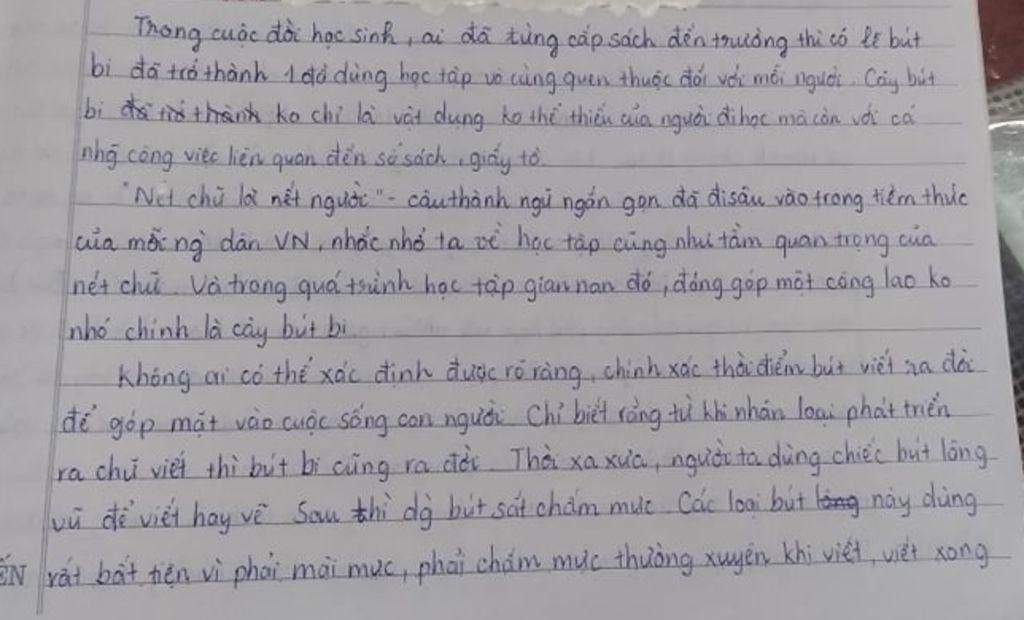 Trong cuộc đời học sinh, ai đã từng cắp sách đến trường thì có lẽ bút
bi đã trở thành 1 đồ dùng học tập vô cùng quen thuộc đối với mỗi người. Cây bút
bi đã trở thành ko chỉ là vật dụng ko thể thiếu của người đi học mà còn với cả
nhg̃ công việc liên quan đến sổ sách, giấy tờ.
"Nét chữ là nết người" - câu thành ngữ ngắn gọn đã đi sâu vào trong tiềm thức
của mỗi ng` dân VN, nhắc nhở ta về học tập cũng như tầm quan trọng của
nét chữ. Và trong quá trình học tập gian nan đó, đóng góp một công lao ko
nhỏ chính là cây bút bi
Không ai có thể xác định được rõ ràng, chính xác thời điểm bút viết ra đời
để góp mặt vào cuộc sống con người. Chỉ biết rằng từ khi nhân loại phát triển
ra chữ viết thì bút bi cũng ra đời. Thời xa xưa, người ta dùng chiếc bút lông
vũ để viết hay vẽ. Sau thì dg̀ bút sắt chấm mực. Các loại bút lông này dùng
rất bất tiện vì phải mài mực, phải chấm mực thường xuyên khi viết, viết xong